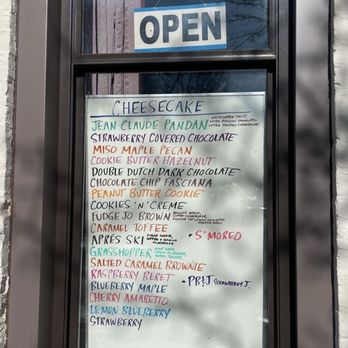 OPEN
CHEESECAKE
JEAN-CLAUDE PANDAN
STRAWBERRY COVERED CHOCOLATE
MISO MAPLE PECAN
COOKIE BUTTER HAZELNUT
DOUBLE DUTCH DARK CHOCOLATE
CHOCOLATE CHIP FASCIANA
PEANUT BUTTER COOKIE
COOKIES 'N' CREME
FUDGE JO BROWN
CARAMEL TOFFEE
APRÉS SKI
• S'MORED
GRASSHOPPER
SALTED CARAMEL BROWNIE
RASPBERRY BERET
• PB&J STRAWBERRY J.
BLUEBERRY MAPLE
CHERRY AMARETTO
LEMON BLUEBERRY
STRAWBERRY